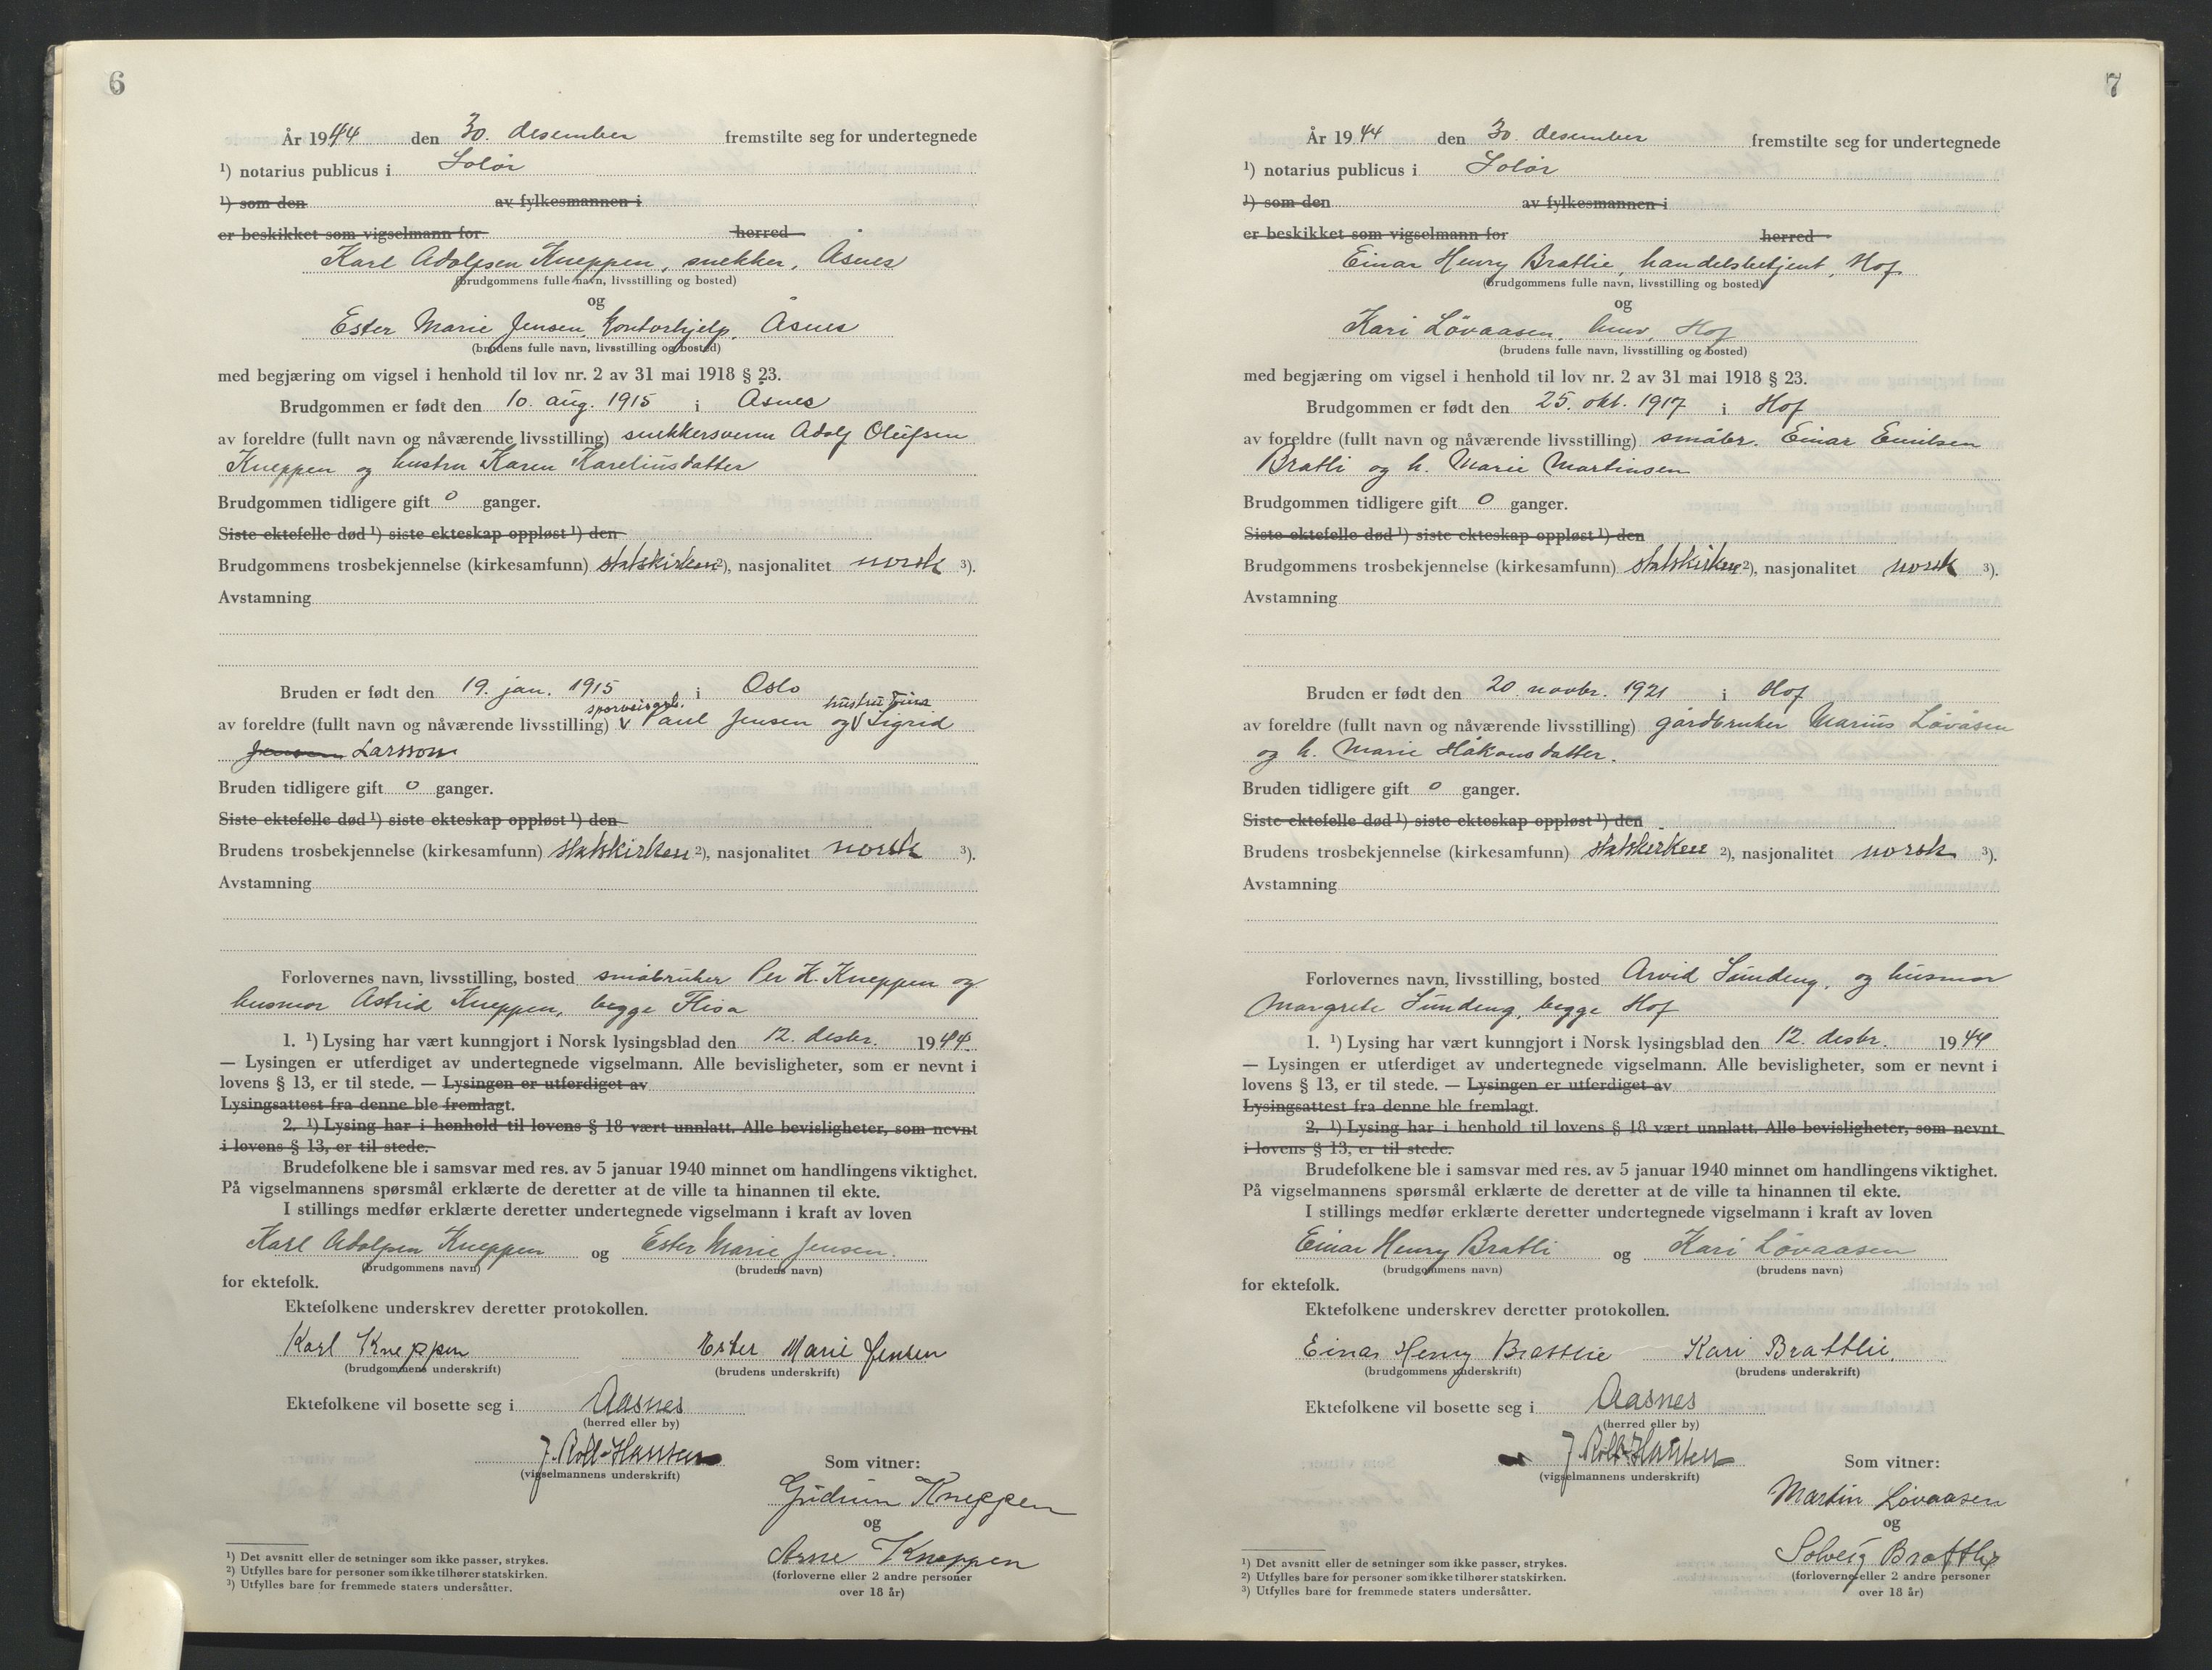 6
År 1944 den 30. desember fremstilte seg for undertegnede
¹) notarius publicus i Solør
¹) som den av fylkesmannen i
er beskikket som vigselmann for herred
Karl Adolfsen Kneppen, snekker, Åsnes
(brudgommens fulle navn, livsstilling og bosted)
og
Ester Marie Jensen, kontorhjelp, Åsnes
(brudens fulle navn, livsstilling og bosted)
med begjæring om vigsel i henhold til lov nr. 2 av 31 mai 1918 § 23.
Brudgommen er født den 10. aug. 1915 i Åsnes
av foreldre (fullt navn og nåværende livsstilling) snekkersvenn Adolf Olufsen
Kneppen og hustru Karen Kareliusdatter
Brudgommen tidligere gift 0 ganger.
Siste ektefelle død ¹) siste ekteskap oppløst ¹) den
Brudgommens trosbekjennelse (kirkesamfunn) statskirken ²), nasjonalitet norsk ³).
Avstamning
Bruden er født den 19. jan. 1915 i Oslo
sporveisarb. hustru Tina
av foreldre (fullt navn og nåværende livsstilling) V Paul Jensen og V Sigrid
Jensen Larsson
Bruden tidligere gift 0 ganger.
Siste ektefelle død ¹) siste ekteskap oppløst ¹) den
Brudens trosbekjennelse (kirkesamfunn) statskirken ²), nasjonalitet norsk ³).
Avstamning
Forlovernes navn, livsstilling, bosted småbruker Per K. Kneppen og
husmor Astrid Kneppen, begge Flisa
1. ¹) Lysing har vært kunngjort i Norsk lysingsblad den 12. desbr. 1944.
— Lysingen er utferdiget av undertegnede vigselmann. Alle bevisligheter, som er nevnt i
lovens § 13, er til stede. — Lysingen er utferdiget av
Lysingsattest fra denne ble fremlagt.
2. ¹) Lysing har i henhold til lovens § 18 vært unnlatt. Alle bevisligheter, som nevnt
i lovens § 13, er til stede.
Brudefolkene ble i samsvar med res. av 5 januar 1940 minnet om handlingens viktighet.
På vigselmannens spørsmål erklærte de deretter at de ville ta hinannen til ekte.
I stillings medfør erklærte deretter undertegnede vigselmann i kraft av loven
Karl Adolfsen Kneppen og Ester Marie Jensen.
(brudgommens navn) (brudens navn)
for ektefolk.
Ektefolkene underskrev deretter protokollen.
Karl Kneppen Ester Marie Jensen
(brudgommens underskrift) (brudens underskrift)
Ektefolkene vil bosette seg i Aasnes
(herred eller by)
J. Roll-Hansen
(vigselmannens underskrift)
Som vitner:
Gudrun Kneppen
og
Arne Kneppen
(forloverne eller 2 andre personer
over 18 år)
¹) Det avsnitt eller de setninger som ikke passer, strykes.
²) Utfylles bare for personer som ikke tilhører statskirken.
³) Utfylles bare for fremmede staters undersåtter.
7
År 1944 den 30. desember fremstilte seg for undertegnede
¹) notarius publicus i Solør
¹) som den av fylkesmannen i
er beskikket som vigselmann for herred
Einar Henry Brattlie, handelsbetjent, Hof
(brudgommens fulle navn, livsstilling og bosted)
og
Kari Løvaasen, husv, Hof
(brudens fulle navn, livsstilling og bosted)
med begjæring om vigsel i henhold til lov nr. 2 av 31 mai 1918 § 23.
Brudgommen er født den 25. okt. 1917 i Hof
av foreldre (fullt navn og nåværende livsstilling) småbr. Einar Emilsen
Bratli og h. Marie Martinsen
Brudgommen tidligere gift 0 ganger.
Siste ektefelle død ¹) siste ekteskap oppløst ¹) den
Brudgommens trosbekjennelse (kirkesamfunn) statskirken ²), nasjonalitet norsk ³).
Avstamning
Bruden er født den 20 novbr. 1921 i Hof
av foreldre (fullt navn og nåværende livsstilling) gårdbruker Marius Løvåsen
og h. Marie Håkonsdatter.
Bruden tidligere gift 0 ganger.
Siste ektefelle død ¹) siste ekteskap oppløst ¹) den
Brudens trosbekjennelse (kirkesamfunn) statskirken ²), nasjonalitet norsk ³).
Avstamning
Forlovernes navn, livsstilling, bosted Arvid Sundeng, og husmor
Margrete Sundeng, begge Hof
1. ¹) Lysing har vært kunngjort i Norsk lysingsblad den 12. desbr. 1944
— Lysingen er utferdiget av undertegnede vigselmann. Alle bevisligheter, som er nevnt i
lovens § 13, er til stede. — Lysingen er utferdiget av
Lysingsattest fra denne ble fremlagt.
2. ¹) Lysing har i henhold til lovens § 18 vært unnlatt. Alle bevisligheter, som nevnt
i lovens § 13, er til stede.
Brudefolkene ble i samsvar med res. av 5 januar 1940 minnet om handlingens viktighet.
På vigselmannens spørsmål erklærte de deretter at de ville ta hinannen til ekte.
I stillings medfør erklærte deretter undertegnede vigselmann i kraft av loven
Einar Henry Bratli og Kari Løvaasen
(brudgommens navn) (brudens navn)
for ektefolk.
Ektefolkene underskrev deretter protokollen.
Einar Henry Brattlie Kari Brattlie.
(brudgommens underskrift) (brudens underskrift)
Ektefolkene vil bosette seg i Aasnes
(herred eller by)
J. Roll-Hansen
(vigselmannens underskrift)
Som vitner:
Martin Løvaasen
og
Solveig Brattlie
(forloverne eller 2 andre personer
over 18 år)
¹) Det avsnitt eller de setninger som ikke passer, strykes.
²) Utfylles bare for personer som ikke tilhører statskirken.
³) Utfylles bare for fremmede staters undersåtter.